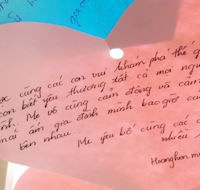 cùng các con vui khám phá thế g
con biết yêu thương tất cả mọi ngư
nh. Mẹ vô cùng cảm động và cảm
mái ấm gia đình mình bao giờ cũ
bên nhau.
Mẹ yêu bố cùng các c
nhiều